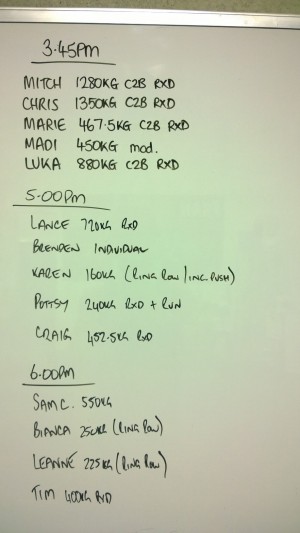 3.45PM
MITCH 1280KG C2B RXD
CHRIS 1350KG C2B RXD
MARIE 467.5KG C2B RXD
MADI 450KG mod.
LUKA 880KG C2B RXD
5.00PM
LANCE 720KG RXD
BRENDEN INDIVIDUAL
KAREN 160KG (RING ROW / INC. PUSH)
POTTSY 240KG RXD + RUN
CRAIG 452.5KG RXD
6.00PM
SAM C. 550KG
BIANCA 250KG (RING ROW)
LEANNE 225KG (RING ROW)
TIM 400KG RXD